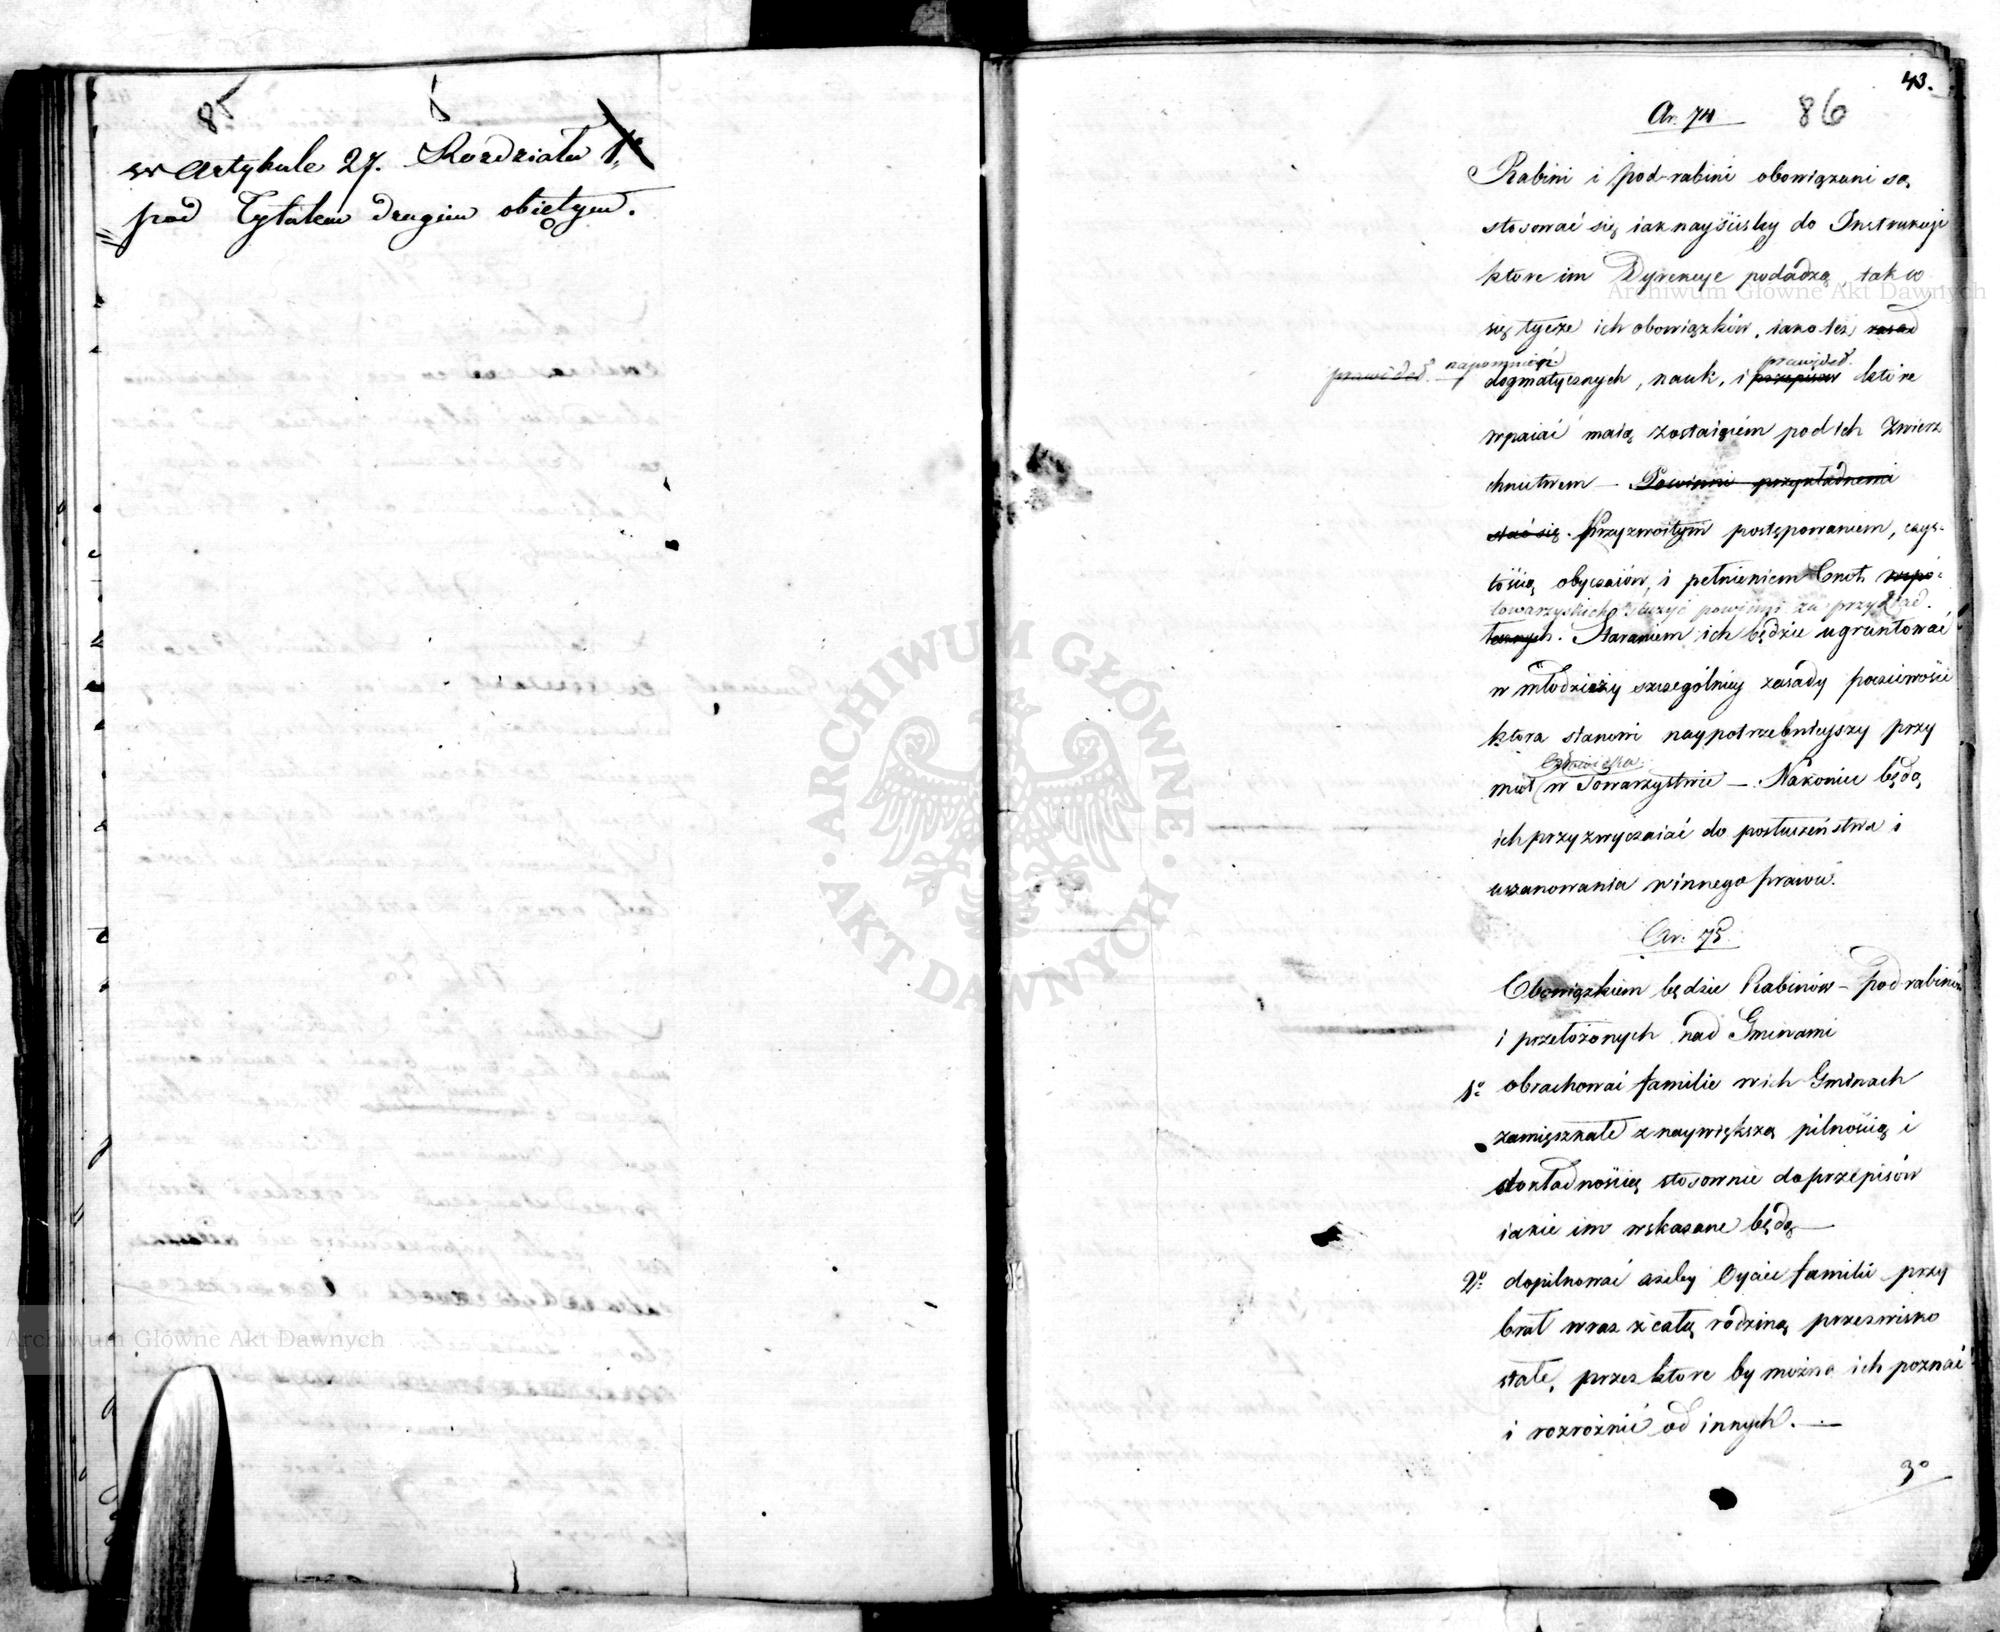 85
w Artykule 27. Rozdziału 1º
pod Tytułem drugim obiętym.
43.
86
Ar. 74
Rabini i pod-rabini obowiązani są,
stosować się iak nayściśley do Instrukcyi
ktore im Dyrekcye podadzą, tak co
się tycze ich obowiązków, iako też zasad
prawideł. napomnień prawideł.
dogmatycznych, nauk, i przepisów które
wpaiać maią zostaiącem pod ich Zwierz
chnictwem — Powinni przykładnemi
stać się. Przyzwoitym postępowaniem, czys-
tością obyczaiów, i pełnieniem Cnot wspo-
towarzyskich służyć powinni za przykład.
łecznych. Staraniem ich będzie ugruntować
w młodzieży szczególniey zasady poczciwości
która stanowi naypotrzebnieyszy przy
Człowieka
miot w Towarzystwie — Nakoniec będą
ich przyzwyczaiać do posłuszeństwa i
uszanowania winnego prawu.
Ar. 75
Obowiązkiem będzie Rabinów — podrabinów
i przełożonych nad Gminami
1º obrachować familie w ich Gminach
zamięszkałe z naywiększą pilnością i
dokładnością stosownie do przepisów
iakie im wskazane będą —
2º dopilnować ażeby Oyciec familii przy
brał wraz z całą rodziną przezwisko
stałe, przez ktore by można ich poznać
i rozróżnić od innych. —
3º
ARCHIWUM GŁÓWNE AKT DAWNYCH
Archiwum Główne Akt Dawnych
Archiwum Główne Akt Dawnych